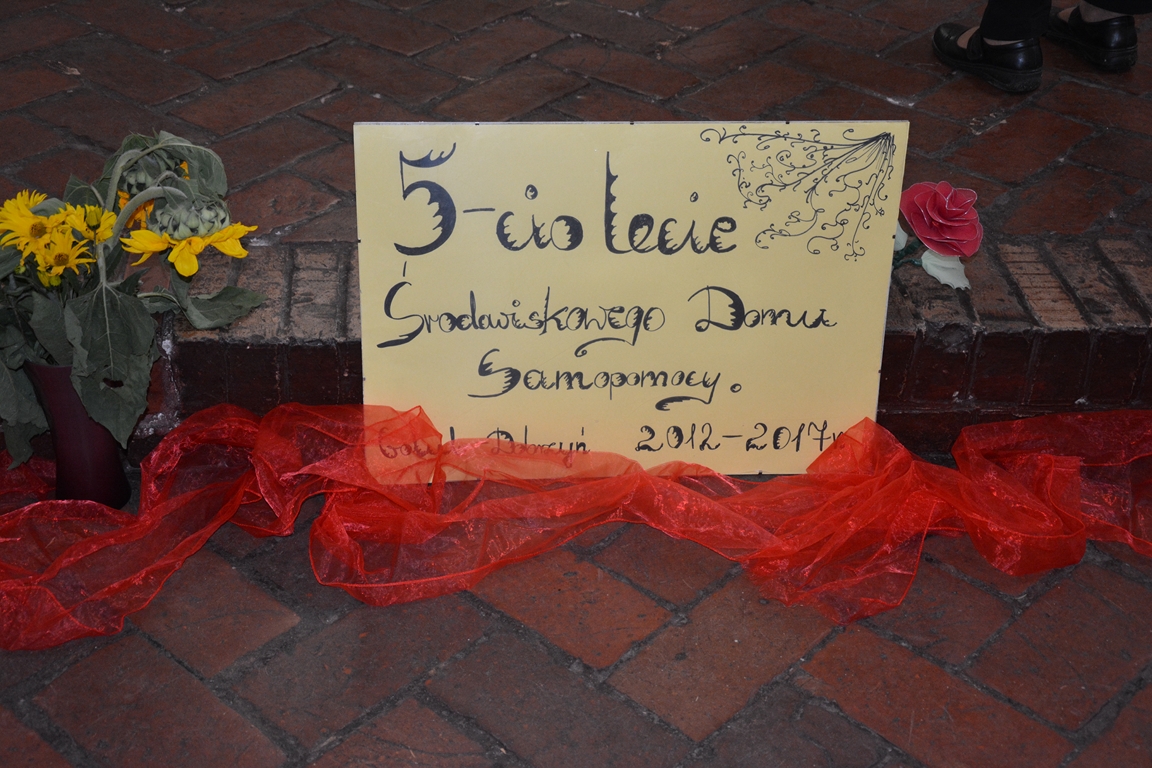 5-cio lecie
Środowiskowego Domu
Samopomocy.
Golub Dobrzyń 2012-2017r